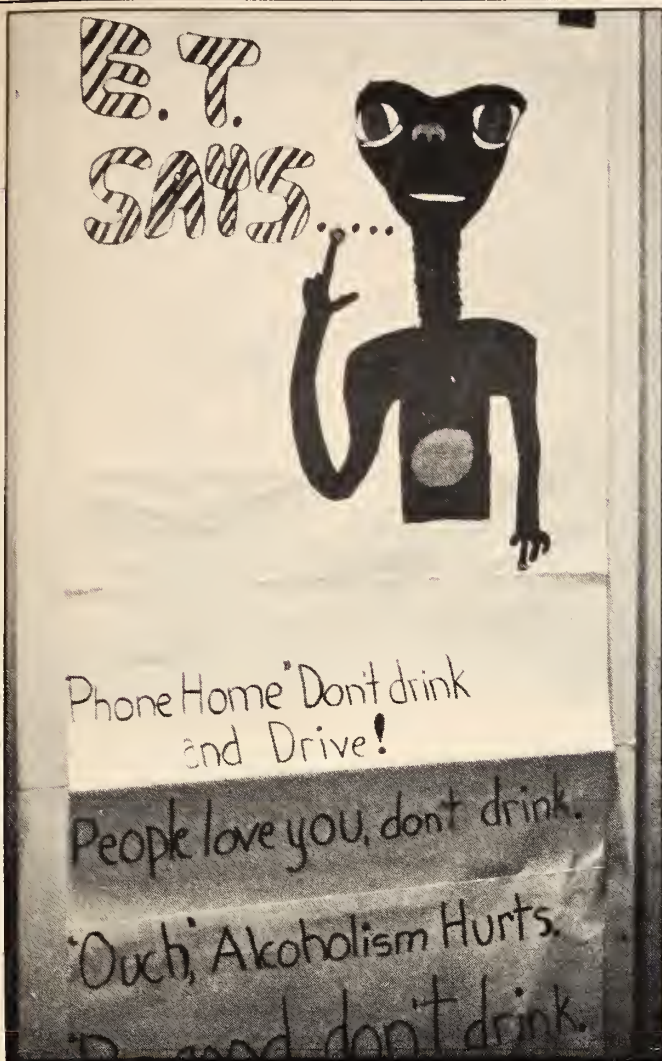 E.T.
SAYS.....
Phone Home" Don't drink
and Drive!
People love you, don't drink.
"Ouch," Alcoholism Hurts.
good don't drink.